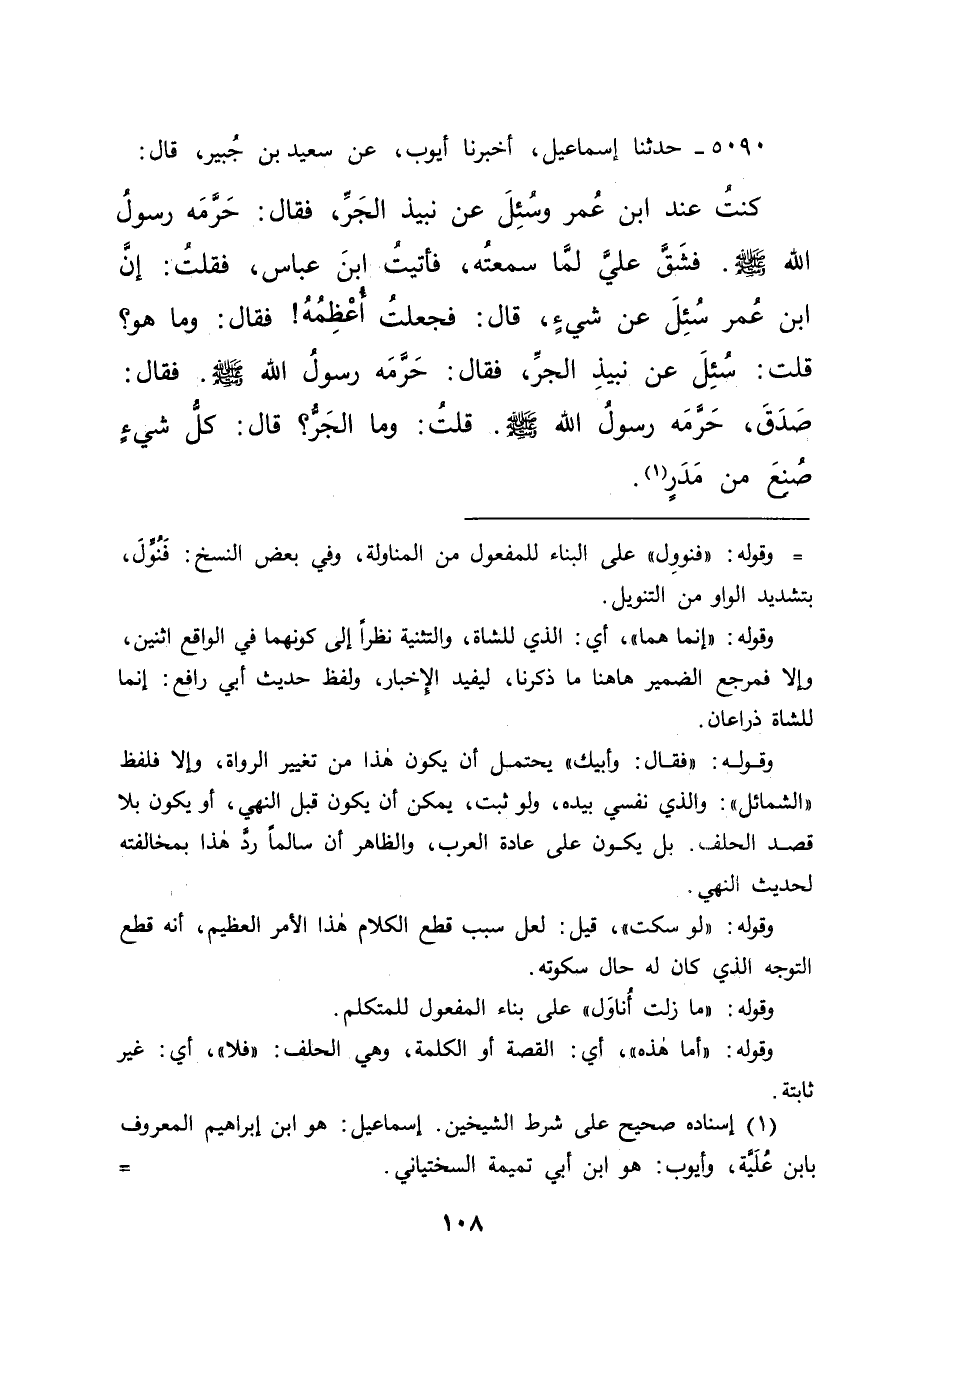 ٥٠٩٠ـ حدثنا إسماعيل، أخبرنا أيوب، عن سعيد بن جُبير، قال:
كنتُ عند ابن عُمر وسُئِلَ عن نبيذ الجَرِّ، فقال: حَرَّمَه رسولُ
الله ﷺ. فشَقَّ عليَّ لمَّا سمعتُه، فأتيتُ ابنَ عباس، فقلتُ: إنَّ
ابن عُمر سُئِلَ عن شيءٍ، قال: فجعلتُ أُعْظِمُهُ! فقال: وما هو؟
قلت: سُئِلَ عن نبيذِ الجرِّ، فقال: حَرَّمَه رسولُ الله ﷺ. فقال:
صَدَقَ، حَرَّمَه رسولُ الله ﷺ. قلتُ: وما الجَرُّ؟ قال: كلُّ شيءٍ
صُنِعَ من مَدَرٍ(١).
= وقوله: «فنوول» على البناء للمفعول من المناولة، وفي بعض النسخ: فَنُوِّلَ،
بتشديد الواو من التنويل.
وقوله: «إنما هما»، أي: الذي للشاة، والتثنية نظراً إلى كونهما في الواقع اثنين،
وإلا فمرجع الضمير هاهنا ما ذكرنا، ليفيد الإخبار، ولفظ حديث أبي رافع: إنما
للشاة ذراعان.
وقوله: «فقال: وأبيك» يحتمل أن يكون هٰذا من تغيير الرواة، وإلا فلفظ
«الشمائل»: والذي نفسي بيده، ولو ثبت، يمكن أن يكون قبل النهي، أو يكون بلا
قصد الحلف. بل يكون على عادة العرب، والظاهر أن سالماً ردَّ هٰذا بمخالفته
لحديث النهي.
وقوله: «لو سكت»، قيل: لعل سبب قطع الكلام هٰذا الأمر العظيم، أنه قطع
التوجه الذي كان له حال سكوته.
وقوله: «ما زلت أُناوَل» على بناء المفعول للمتكلم.
وقوله: «أما هٰذه»، أي: القصة أو الكلمة، وهي الحلف: «فلا»، أي: غير
ثابتة.
(١) إسناده صحيح على شرط الشيخين. إسماعيل: هو ابن إبراهيم المعروف
بابن عُلَيَّة، وأيوب: هو ابن أبي تميمة السختياني. =
١٠٨